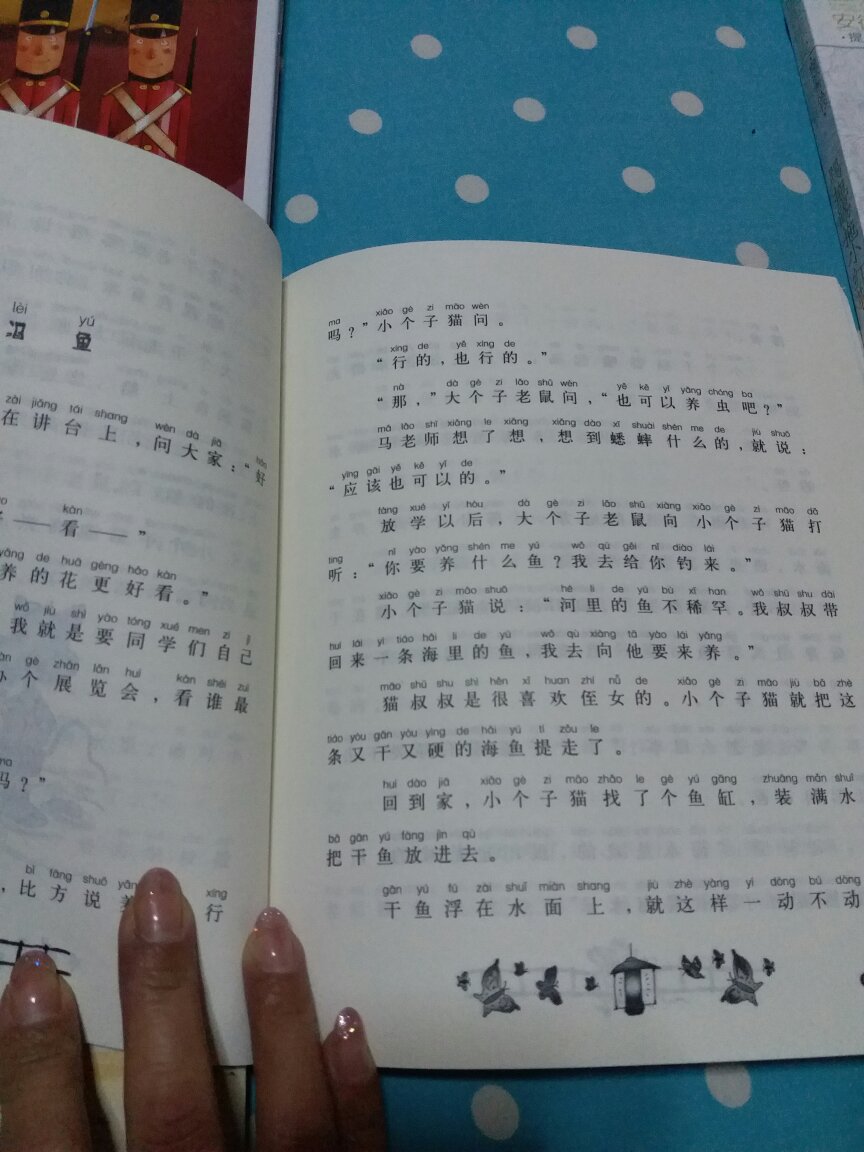 lèi yú
泪 鱼
zài jiǎng tái shang wèn dà jiā
在讲台上，问大家：“好
kàn
——看——”
yǎng de huā gèng hǎo kàn
养的花更好看。”
wǒ jiù shì yào tóng xué men zì jǐ
我就是要同学们自己
gè zhǎn lǎn huì kàn shéi zuì
个展览会，看谁最
ma
吗？”
bǐ fāng shuō xíng
，比方说 行
ma xiǎo gè zi māo wèn
吗？”小个子猫问。
xíng de yě xíng de
“行的，也行的。”
nà dà gè zi lǎo shǔ wèn yě kě yǐ yǎng chóng ba
“那，”大个子老鼠问，“也可以养虫吧？”
mǎ lǎo shī xiǎng le xiǎng xiǎng dào xī shuài shén me de jiù shuō
马老师想了想，想到蟋蟀什么的，就说：
yīng gāi yě kě yǐ de
“应该也可以的。”
fàng xué yǐ hòu dà gè zi lǎo shǔ xiàng xiǎo gè zi māo dǎ
放学以后，大个子老鼠向小个子猫打
ting nǐ yào yǎng shén me yú wǒ qù gěi nǐ diào lái
听：“你要养什么鱼？我去给你钓来。”
xiǎo gè zi māo shuō hé li de yú bù xī han wǒ shū shu dài
小个子猫说：“河里的鱼不稀罕。我叔叔带
huí lái yì tiáo hǎi li de yú wǒ qù xiàng tā yào lái yǎng
回来一条海里的鱼，我去向他要来养。”
māo shū shu shì hěn xǐ huan zhí nǚ de xiǎo gè zi māo jiù bǎ zhè
猫叔叔是很喜欢侄女的。小个子猫就把这
tiáo yòu gān yòu yìng de hǎi yú tí zǒu le
条又干又硬的海鱼提走了。
huí dào jiā xiǎo gè zi māo zhǎo le gè yú gāng zhuāng mǎn shuǐ
回到家，小个子猫找了个鱼缸，装满水
bǎ gān yú fàng jìn qù
把干鱼放进去。
gān yú fú zài shuǐ miàn shang jiù zhè yàng yí dòng bú dòng
干鱼浮在水面上，就这样一动不动